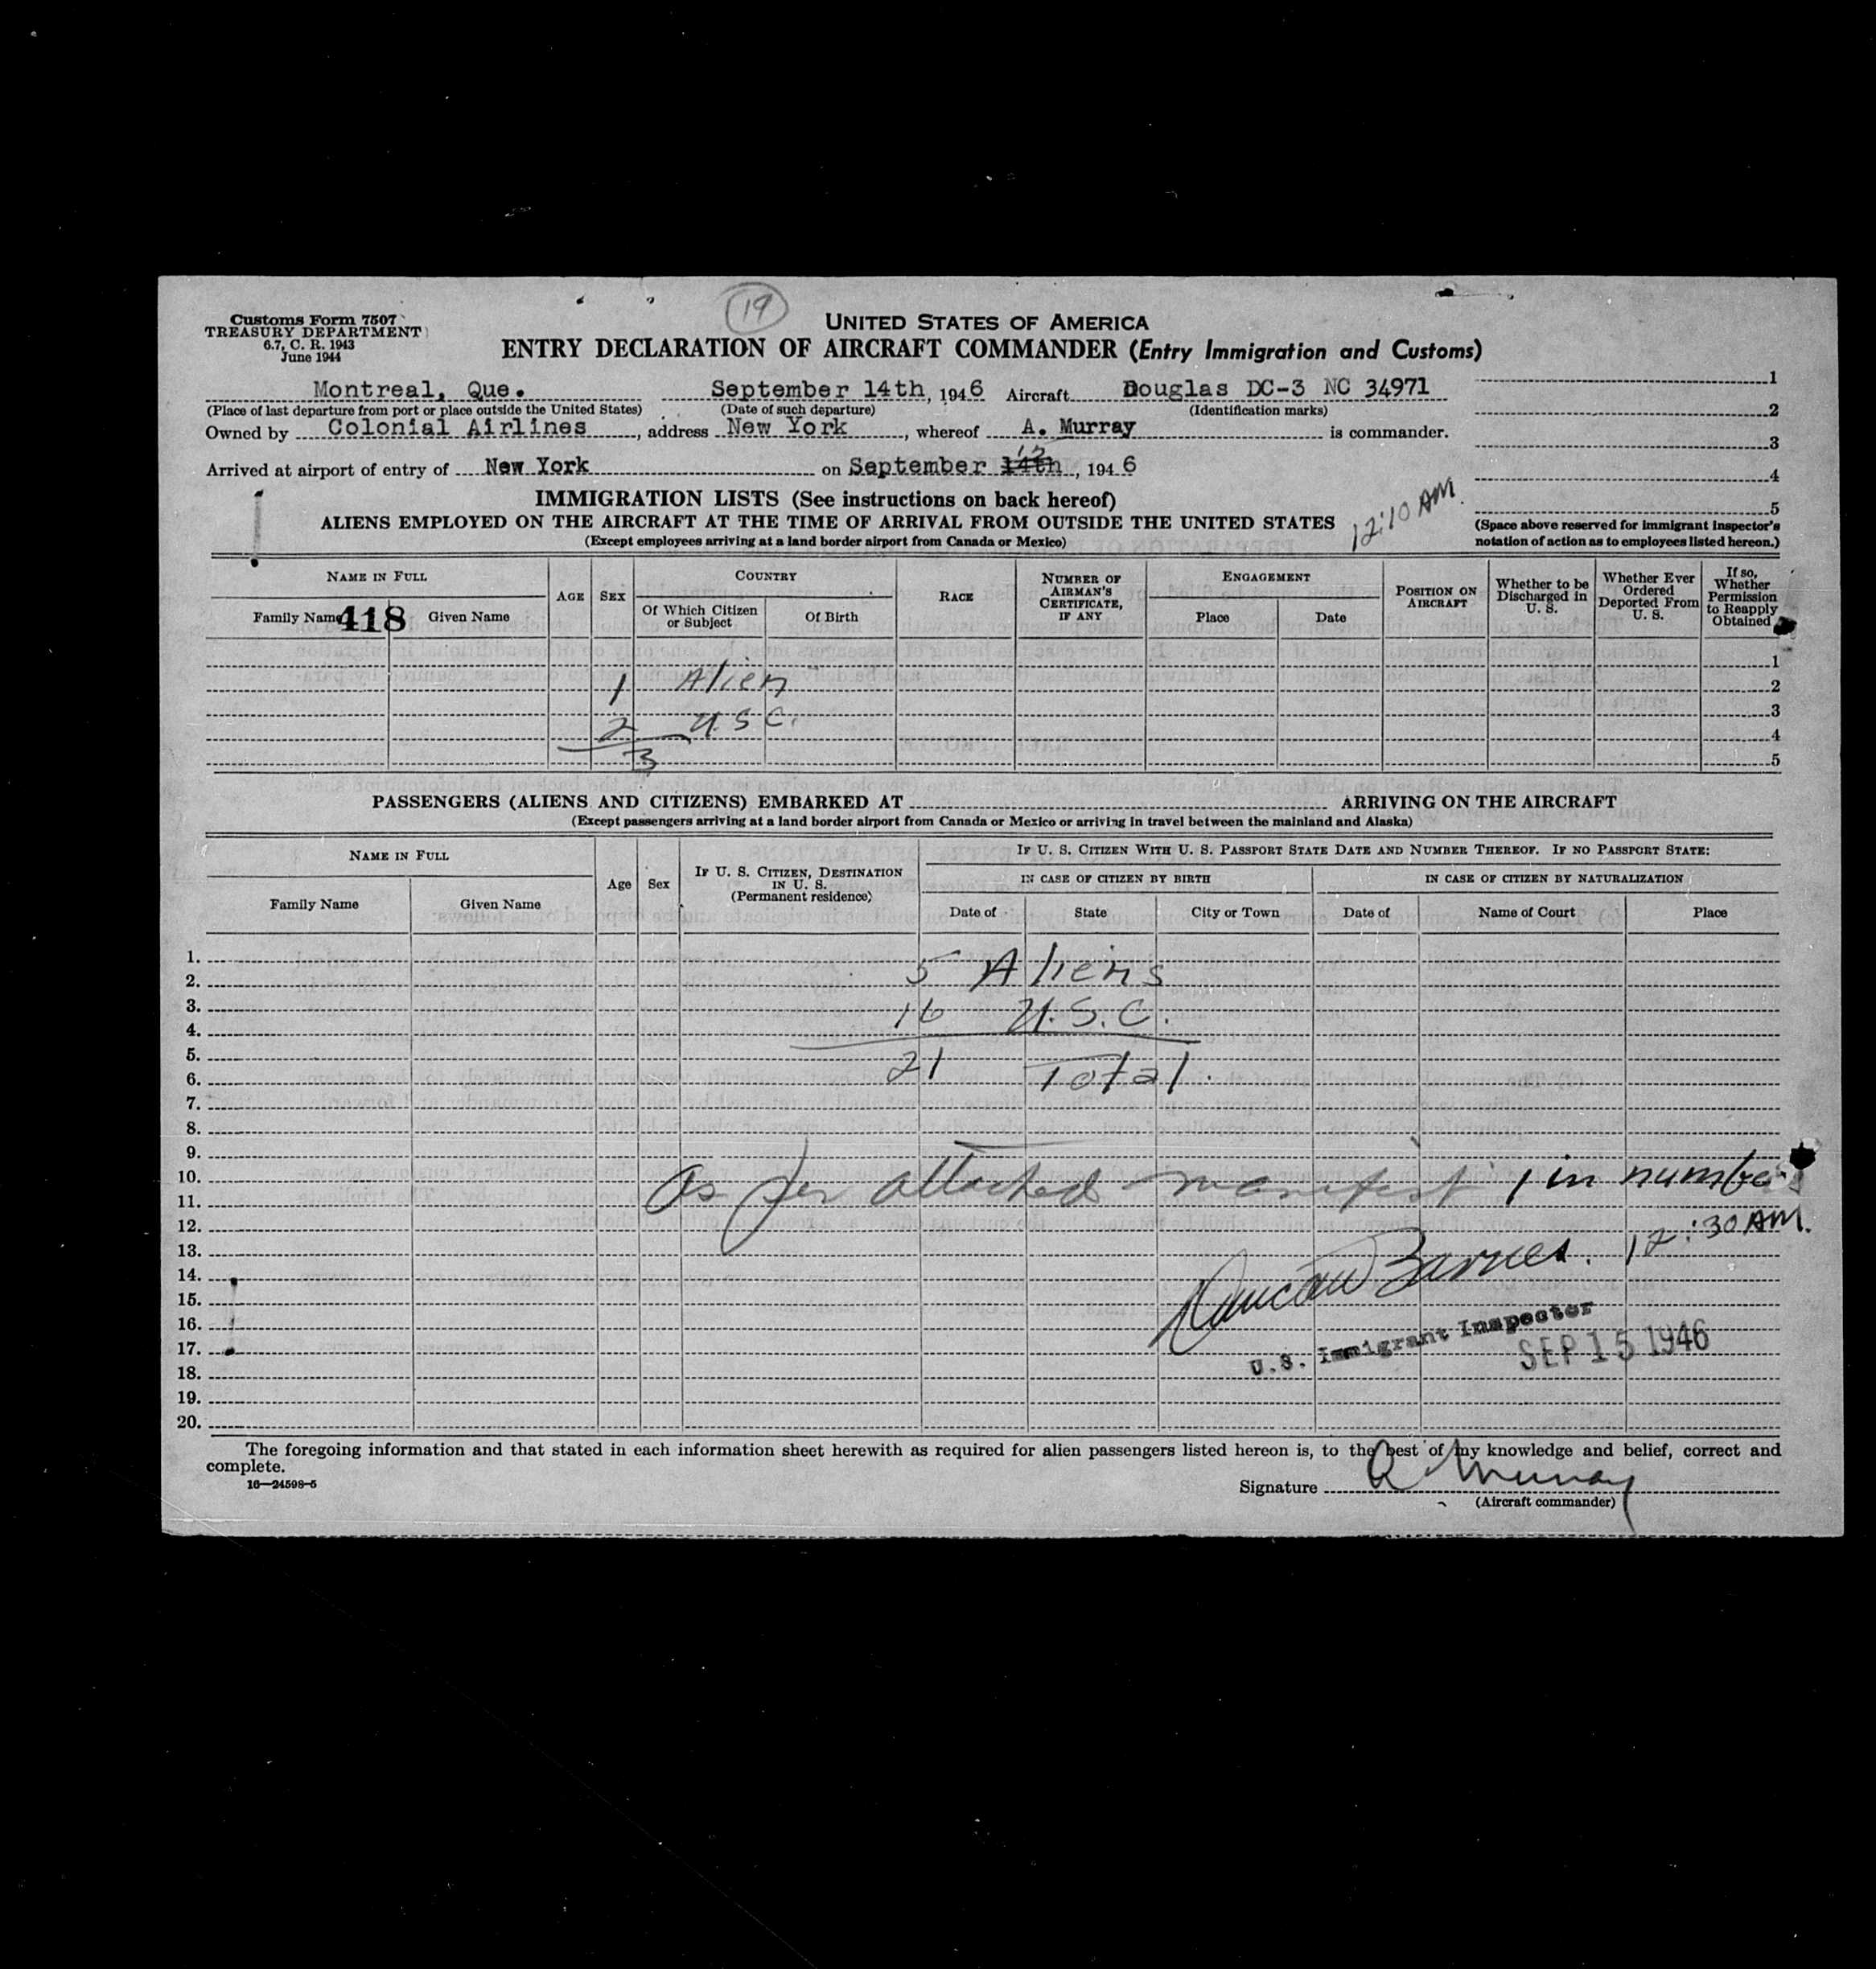 19
Customs Form 7507
TREASURY DEPARTMENT
6.7, C. R. 1943
June 1944
UNITED STATES OF AMERICA
ENTRY DECLARATION OF AIRCRAFT COMMANDER (Entry Immigration and Customs)
Montreal, Que. September 14th, 1946 Aircraft Douglas DC-3 NC 34971
(Place of last departure from port or place outside the United States) (Date of such departure) (Identification marks)
Owned by Colonial Airlines, address New York, whereof A. Murray is commander.
Arrived at airport of entry of New York on September 14th, 1946
1
2
3
4
5
(Space above reserved for immigrant inspector's
notation of action as to employees listed hereon.)
IMMIGRATION LISTS (See instructions on back hereof)
ALIENS EMPLOYED ON THE AIRCRAFT AT THE TIME OF ARRIVAL FROM OUTSIDE THE UNITED STATES
12:10 AM.
(Except employees arriving at a land border airport from Canada or Mexico)
NAME IN FULL
Family Name
418
Given Name
AGE
SEX
COUNTRY
Of Which Citizen or Subject
Of Birth
RACE
NUMBER OF AIRMAN'S CERTIFICATE, IF ANY
ENGAGEMENT
Place
Date
POSITION ON AIRCRAFT
Whether to be Discharged in U. S.
Whether Ever Ordered Deported From U. S.
If so, Whether Permission to Reapply Obtained
1
1 Alien 2
2 U.S.C. 3
4
3 5
PASSENGERS (ALIENS AND CITIZENS) EMBARKED AT ARRIVING ON THE AIRCRAFT
(Except passengers arriving at a land border airport from Canada or Mexico or arriving in travel between the mainland and Alaska)
NAME IN FULL
Family Name
Given Name
Age
Sex
IF U. S. CITIZEN, DESTINATION IN U. S.
(Permanent residence)
IF U. S. CITIZEN WITH U. S. PASSPORT STATE DATE AND NUMBER THEREOF. IF NO PASSPORT STATE:
IN CASE OF CITIZEN BY BIRTH
IN CASE OF CITIZEN BY NATURALIZATION
Date of
State
City or Town
Date of
Name of Court
Place
1.
2. 5 Aliens
3.
4. 16 U.S.C.
5.
6. 21 Total.
7.
8.
9.
10.
11. As per attached manifest 1 in number
12.
13. Duncan Barnes. 12:30 AM.
14.
15.
16. U.S. Immigrant Inspector
17. SEP 15 1946
18.
19.
20.
The foregoing information and that stated in each information sheet herewith as required for alien passengers listed hereon is, to the best of my knowledge and belief, correct and
complete.
16—24598-5
Signature A Murray
(Aircraft commander)